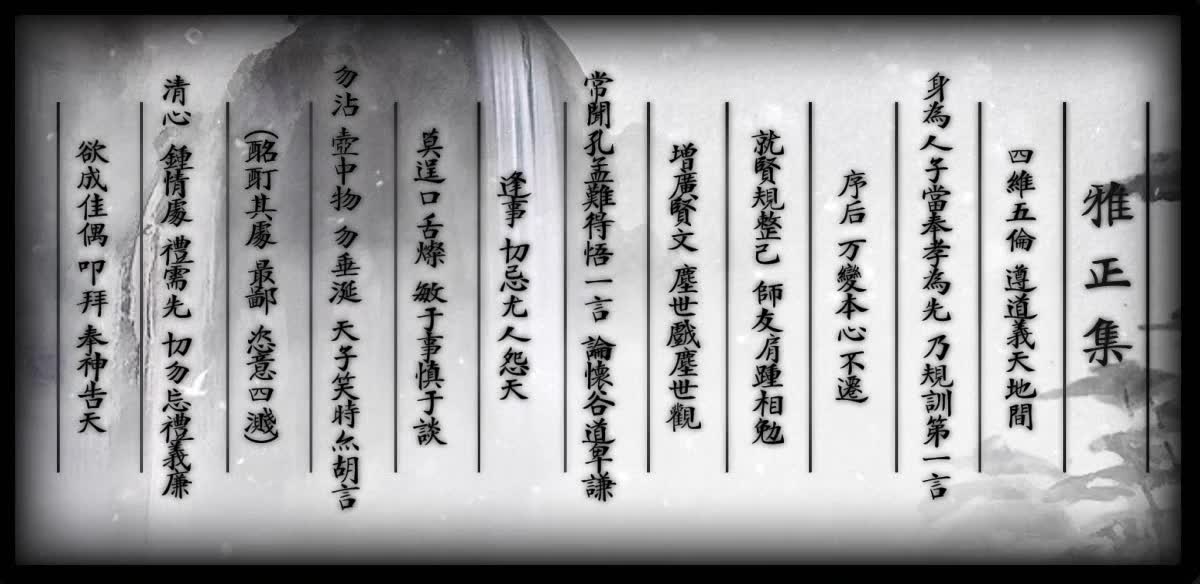 雅正集
四維五倫 遵道義天地間
身為人子當奉孝為先 乃規訓第一言
序后 万變本心不遷
就賢規整己 師友肩踵相勉
增廣賢文 塵世戲塵世觀
常聞孔孟難得悟一言 論懷谷道卑謙
逢事 切忌尤人怨天
莫逞口舌燦 敏于事慎于談
勿沾壺中物 勿垂涎 天子笑時亦胡言
(酩酊其處 最鄙 恣意四濺)
清心 鍾情處 禮需先 切勿忘禮義廉
欲成佳偶 叩拜 奉神告天